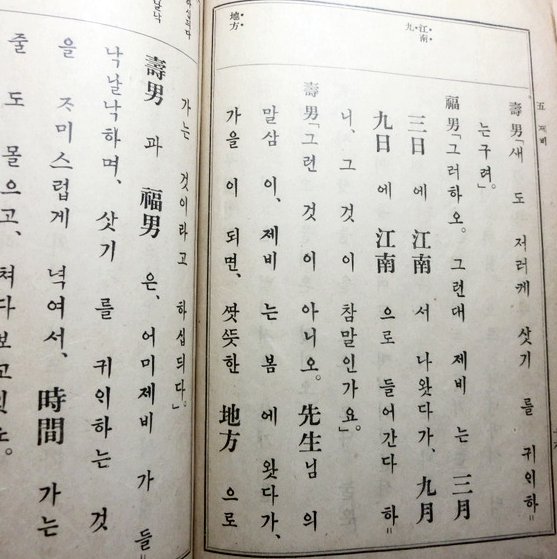 五 제비
江南·
九·
地方·
壽男「새 도 저러케 삿기 를 귀이하=
는구려」。
福男「그러하오。 그런대 제비 는 三月
三日 에 江南 서 나왓다가、 九月
九日 에 江南 으로 들어간다 하=
니、 그 것 이 참말인가요。」
壽男「그런 것 이 아니오。 先生님 의
말삼 이、 제비 는 봄 에 왓다가、
가을 이 되면、 ᄯᅡᆺᄯᅳᆺ한 地方 으로
가는 것이라고 하십듸다」。
壽男 과 福男 은、 어미제비 가 들=
낙날낙하며、 삿기 를 귀이하는 것
을 ᄌᆞ미스럽게 녁여서、 時間 가는
줄 도 몰으고、 쳐다보고잇소。